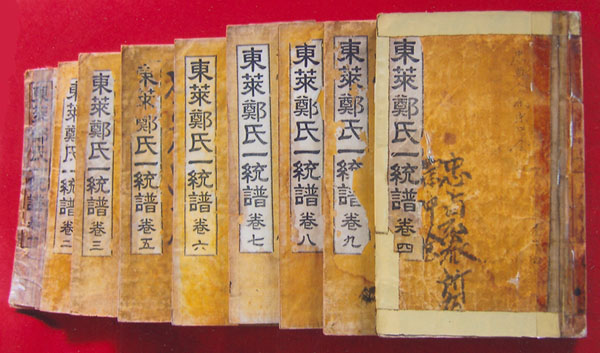 東萊鄭氏一統譜
東萊鄭氏一統譜 卷二
東萊鄭氏一統譜 卷三
東萊鄭氏一統譜 卷五
東萊鄭氏一統譜 卷六
東萊鄭氏一統譜 卷七
東萊鄭氏一統譜 卷八
東萊鄭氏一統譜 卷九
東萊鄭氏一統譜 卷四